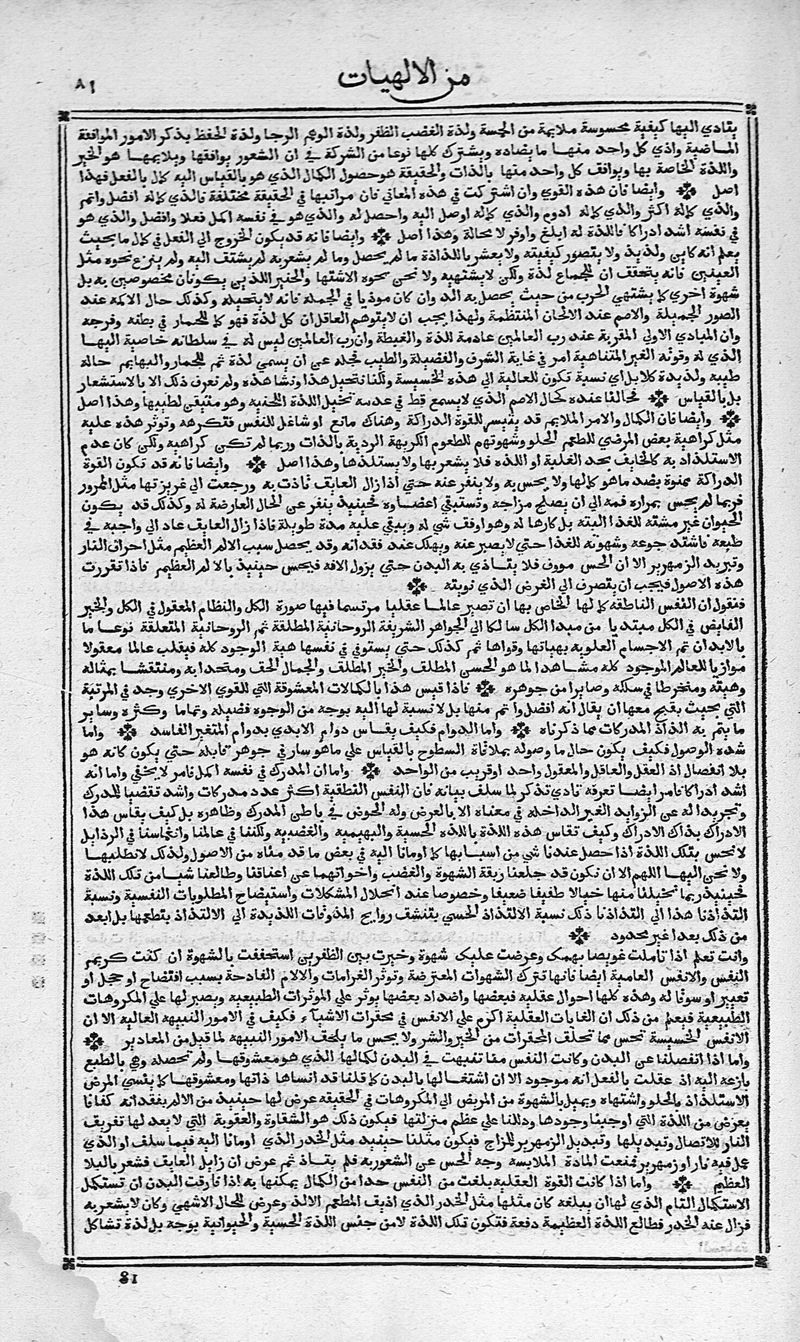 من الالهيات
٨١
يتادي اليها كيفية محسوسة ملايمة من الخمسة ولذة الغضب الظفر ولذة الوهم الرجا ولذة الحفظ بذكر الامور الموافقة
الماضية واذي كل واحد منها ما يضاده ويشترك كلها نوعا من الشركة في ان الشعور بوافقها وبلايمها هو الخير
واللذة الخاصة بها وبوافق كل واحد منها بالذات والحقيقة هو حصول الكمال الذي هو بالقياس اليه كمال بالفعل فهذا
اصل وايضا فان هذه القوي وان اشتركت في هذه المعاني فان مراتبها في الحقيقة مختلفة فالذي كماله افضل واتم
والذي كماله اكثر والذي كماله ادوم والذي كماله اوصل اليه واحصل له والذي هو في نفسه اكمل فعلا وافضل والذي هو
في نفسه اشد ادراكا فاللذة له ابلغ واوفر لا محالة وهذا اصل وايضا فانه قد يكون الخروج الي الفعل في كمال ما بحيث
يعلم انه كاين ولذيذ ولا يتصور كيفيته ولا يشعر باللذاذة ما لم يحصل وما لم يشعر به لم يشتق اليه ولم ينزع نحوه مثل
العينين فانه يتحقف ان للجماع لذة ولكن لا يشتهيه ولا نحن نحوه الاشتها والحنين اللذين يكونان مخصوصين به بل
شهوة اخري كما يشتهي الحرب من حيث يحصل به الد وان كان موذيا في الجملة فانه لا يتخيله وكذلك حال الاكمه عند
الصور الجميلة والاصم عند الالحان المنتظمة ولهذا يجب ان لا يتوهم العاقل ان كل لذة فهو كما للحمار في بطنه وفرجه
وان المبادي الاولي المقربة عند رب العالمين عادمة للذة والغبطة وان رب العالمين ليس له في سلطانه خاصية البها
الذي له وقوته الغير المتناهية امر في غاية الشرف والفضيلة والطيب نجله عن ان يسمي لذة ثم للحمار والبهايم حالة
طيبه ولذيذة كلا بل اي نسبة تكون للعالية الي هذه الخسيسة ولكنا نتخيل هذا ونشاهده ولم نعرف ذلك الا بالاستشعار
بل بالقياس فحالنا عنده كحال الاصم الذي لا يسمع قط في عدمه تخيل اللذة اللحنية وهو متيقن لطيبها وهذا اصل
وايضا فان الكمال والامر الملايم قد يتيسر للقوة الدراكة وهناك مانع او شاغل للنفس فتكرهه وتوثر ضده عليه
مثل كراهية بعض المرضي للطعم الحلو وشهوتهم للطعوم الكريهة الردية بالذات وربما لم تكن كراهية ولكن كان عدم
الاستلذاذ به كالخايف يجد الغلبة او اللذه فلا يشعر بها ولا يستلذها وهذا اصل وايضا فانه قد تكون القوة
الدراكة ممنوة بضد ما هو كمالها ولا يحس به ولا ينفر عنه حتي اذا زال العايف تاذت به ورجعت الي غريزتها مثل الممرور
فربما لم يحس بمراره فمه الي ان يصلح مزاجه وتستنقي اعضاوه فحينيذ ينفر عن الحال العارضة له وكذلك قد يكون
الحيوان غير مشته للغذا البته بل كارها له وهو اوفف شي له ويبقي عليه مدة طويلة فاذا زال العايف عاد الي واجبه في
طبعه فاشتد جوعه وشهوته للغذا حتي لا يصبر عنه ويهلك عند فقدانه وقد يحصل سبب الالم العظيم مثل احراق النار
وتبريد الزمهرير الا ان الحس مووف فلا يتاذي به البدن حتي يزول الافه فيحس حينيذ بالالم العظيم فاذا تقررت
هذه الاصول فيجب ان ينصرف الي الغرض الذي نويته
فنقول ان النفس الناطقه كمالها الخاص بها ان تصير عالما عقليا مرتسما فيها صورة الكل والنظام المعقول في الكل والخير
الفايض في الكل مبتديا من مبدا الكل سالكا الي الجواهر الشريفة الروحانية المطلقة ثم الروحانية المتعلقة نوعا ما
بالابدان ثم الاجسام العلويه بهياتها وقواها ثم كذلك حتي يستوفي في نفسها هية الوجود كله فيقلب عالما معقولا
موازيا للعالم الموجود كله مشاهدا لما هو الحسن المطلف والخير المطلف والجمال الحف ومتحدا به ومنتقشا بمثاله
وهيته ومنخرطا في سلكه وصايرا من جوهره فاذا قيس هذا بالكمالات المعشوقة التي للقوي الاخري وجد في المرتبة
التي بحيث يقبح معها ان يقال انه افضل واتم منها بل لا نسبة لها اليه بوجه من الوجوه فضيله وتماما وكثره وساير
ما يتم به الذاذ المدركات مما ذكرناه واما الدوام فكيف يقاس دوام الابدي بدوام المتغير الفاسد واما
شدة الوصول فكيف يكون حال ما وصوله بملاقاة السطوح بالقياس علي ما هو سار في جوهر قابله حتي يكون كانه هو
بلا انفصال اذ العقل والعاقل والمعقول واحد او قريب من الواحد واما ان المدرك في نفسه اكمل فامر لا يخفي واما انه
اشد ادراكا فامر ايضا تعرفه بادني تذكر لما سلف بيانه فان النفس النطقية اكثر عدد مدركات واشد تقصيا للمدرك
وتجريدا له عن الزوايد الغير الداخله في معناه الا بالعرض وله الخوض في باطن المدرك وظاهره بل كيف يقاس هذا
الادراك بذاك الادراك وكيف تقاس هذه اللذة باللذه الحسية والبهيمية والغضبيه ولكننا في عالمنا وانغماسنا في الرذايل
لا نحس بتلك اللذة اذا حصل عندنا شي من اسبابها كما اومانا اليه في بعض ما قد مناه من الاصول ولذلك لا نطلبها
ولا نحن اليها اللهم الا ان نكون قد جلعنا ربقة الشهوة والغضب واخواتهما عن اعناقنا وطالعنا شيا من تلك اللذة
فحينيذ ربما تخيلنا منها خيالا طفيفا ضعيفا وخصوصا عند انحلال المشكلات واستيضاح المطلوبات النفسية ونسبة
التذاذنا هذا الي التذاذنا ذلك نسبة الالتذاذ الحسي بتنشف روايح المذوقات اللذيذة الي الالتذاذ بتطعمها بل ابعد
من ذلك بعدا غير محدود
وانت تعلم اذا تاملت عويصا يهمك وعرضت عليك شهوة وخيرت بين الظفرين استخففت بالشهوة ان كنت كريم
النفس والانفس العامية ايضا فانها تترك الشهوات المعترضة وتوثر الغرامات والالام الفادحة بسبب افتضاح او خجل او
تعيير او سوقا له وهذه كلها احوال عقليه فبعضها واضداد بعضها يوثر علي الموثرات الطبيعيه ويصبر لها علي المكروهات
الطبيعية فيعلم من ذلك ان الغايات العقلية اكرم علي الانفس في محقرات الاشيآء فكيف في الامور النبيهه العاليه الا ان
الانفس الخسيسة تحس مما تحلف المحقرات من الخير والشر ولا يحس ما يلحف الامور النبيهه لما قبل من المعاذير
واما اذا انفصلنا عن البدن وكانت النفس منا تنبهت في البدن لكمالها الذي هو معشوقها ولم تحصله وهي بالطبع
نازعه اليه اذ عقلت بالفعل انه موجود الا ان اشتغالها بالبدن كما قلنا قد انساها ذاتها ومعشوقها كما ينسي المرض
الاستلذاذ بالحلو واشتهاه ويميل بالشهوة من المريض الي المكروهات في الحقيقه عرض لها حينيذ من الالم بفقدانه كفا ما
يعرض من اللذة التي اوجبنا وجودها ودللنا علي عظم منزلتها فيكون ذلك هو الشقاوة والعقوبة التي لا يعد لها تفريف
النار للاتصال وتبديلها وتبديل الزمهرير للمزاج فيكون مثلنا حينيذ مثل الخدر الذي اومانا اليه فيما سلف او الذي
عمل فيه نار او زمهرير فمنعت المادة الملابسه وجه الحس عن الشعور به فلم يتاذ ثم عرض ان زايل العايف فشعر بالبلا
العظيم واما اذا كانت القوة العقليه بلغت من النفس حدا من الكمال يمكنها به اذا فارقت البدن ان تستكمل
الاستكمال التام الذي لها ان يبلغه كان مثلها مثل الخدر الذي اذيف المطعم الالذ وعرض للحال الاشهي وكان لا يشعر به
فزال عنه الخدر فطالع اللذة العظيمة دفعة فتكون تلك اللذة لا من جنس اللذة الحسية والحيوانية بوجه بل لذة تشاكل
81